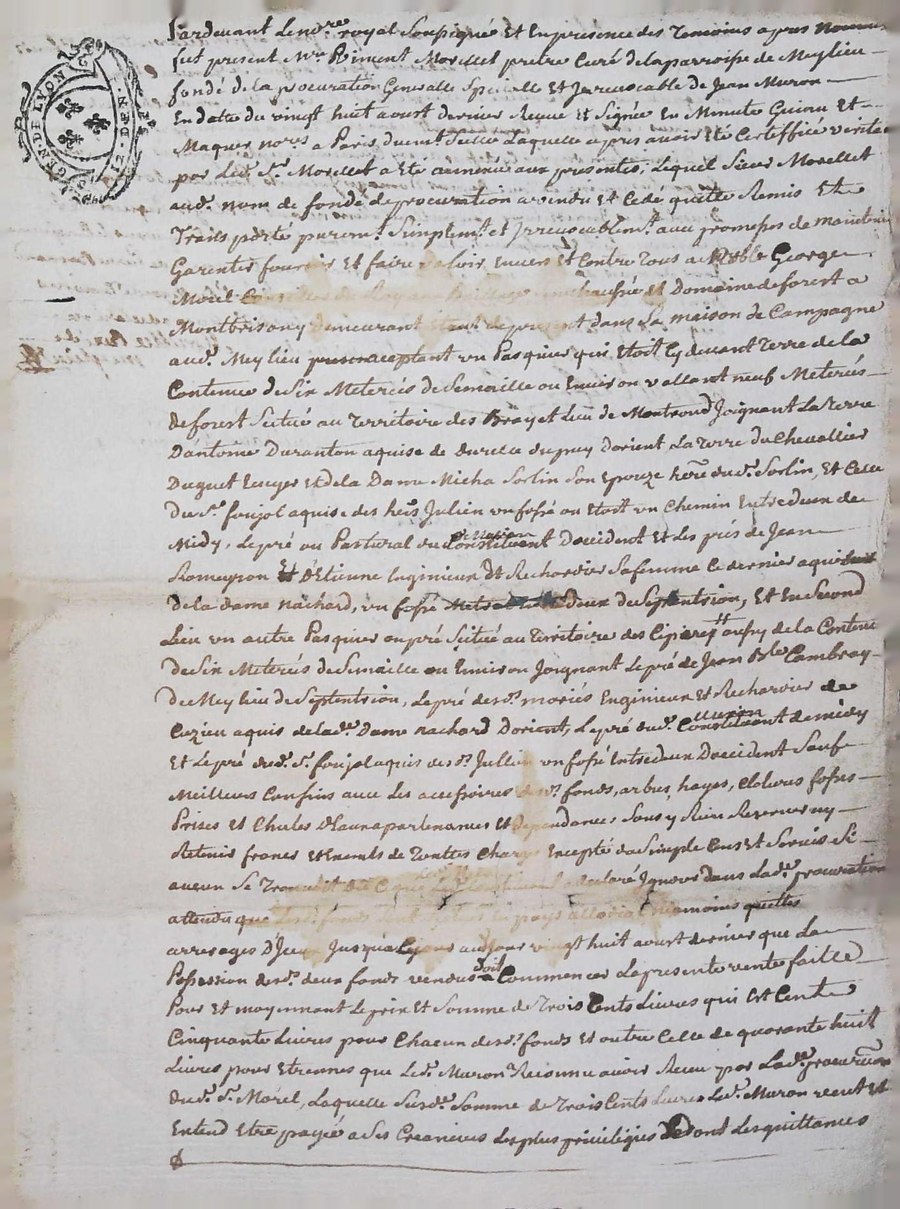 GEN. DE LYON
Pardevant Le no.re royal Soussigné Et En presence des Temoins apres Nommés
fut present M.re Morellet pretre Curé de la parroisse de Meylieu
fondé de la procuration Generalle Specialle Et Irrevocable de Jean Muron
En datte du vingt huit aoust dernier Reçue Et Signée En Minute Et
Maquer no.res a Paris, duem.t Laquelle apres avoir Eté Certeffiée
par Led. S.r Morellet a Eté annexée aux presentes, Lequel Sieur Morellet
aud. nom de fondé de procuration a vendu Et Cedé quitté Remis Et
purem.t Simplem.t et Irrevocablem.t avec promesses de maintenir
Garentir fournir Et faire valoir Envers Et Contre Tous a Noble George
Morel Et Domaine de forest a
Montbrison y demeurant de present dans Sa maison de Campagne
aud. Meylieu un Pasquier qui Etoit Cy devant Terre de la
Contenue de Six Meterées de Semaille ou Environ vallant neuf Meterées
de forest Scitué au Territoire des Lieu de Montrond Joignant La Terre
D'antoine Duranton aquise de dupuy dorient, La Terre du Chevallier
Duguet Ecuyer Et de La Dame Micha Sorlin Son Epouze du d. Sorlin, Et Celle
du S.r foujol aquise des Julien un fossé ou Etoit un Chemin Entredeux de
Midy, Le pré ou Pastural du Constituant Doccident Et Les prés de Jean
Romeyron Et D'Etienne Enginieux Et Rechardier Sa femme Ce dernier aquis
de La dame nachard, un fossé deux de Septentrion, Et En Second
Lieu un autre Pasquier ou pré Scitué au Territoire des aussy de La Contenue
de Six Meterées de Semaille ou Environ Joignant Le pré de Jean B.te Cambray
de Meylieu de Septentrion, Le pré des d. mariés Enginieux Et Rechardier de
Cuzieu aquis de Lad.e Dame nachard Dorient, Le pré du d. Constituant de midy
Et Le pré du d. S.r foujol aquis des d. Jullien un fossé Entredeux Doccident Sauf
Meilleurs Confins avec Les accessoires des d. fonds, arbres, hayes, Clotures fossés
Prises Et Chutes D'Eau apartenances Et dependances Sans y Rien Reserver ny
Retenir francs Et Exempts de Touttes Charges Excepté du Simple Cens Et Servis Si
aucun Se Trouvoit Du Ce que Led. a declaré Ignorer dans Lad.e procuration
attendu que Les d. fonds pays allodial Neamoins quittes
arrerages D'Jceux Jusqua audjour vingt huit aoust dernier que La
Possession des d. deux fonds vendus Doit Commencer La presente vente faitte
Pour Et moyennant Le prix Et Somme de Trois Cents Livres qui Est Cent
Cinquante Livres pour Chacun des d. fonds Et outre Celle de quarante huit
Livres pour Etrennes que Led. Muron a Reconnu avoir Reçu par Lad.e procuration
du d. S.r Morel, Laquelle Susd.e Somme de Trois Cents Livres Led. Muron veut Et
Entend Etre payée a Ses Creanciers Les plus privilegiés dont Les quittances